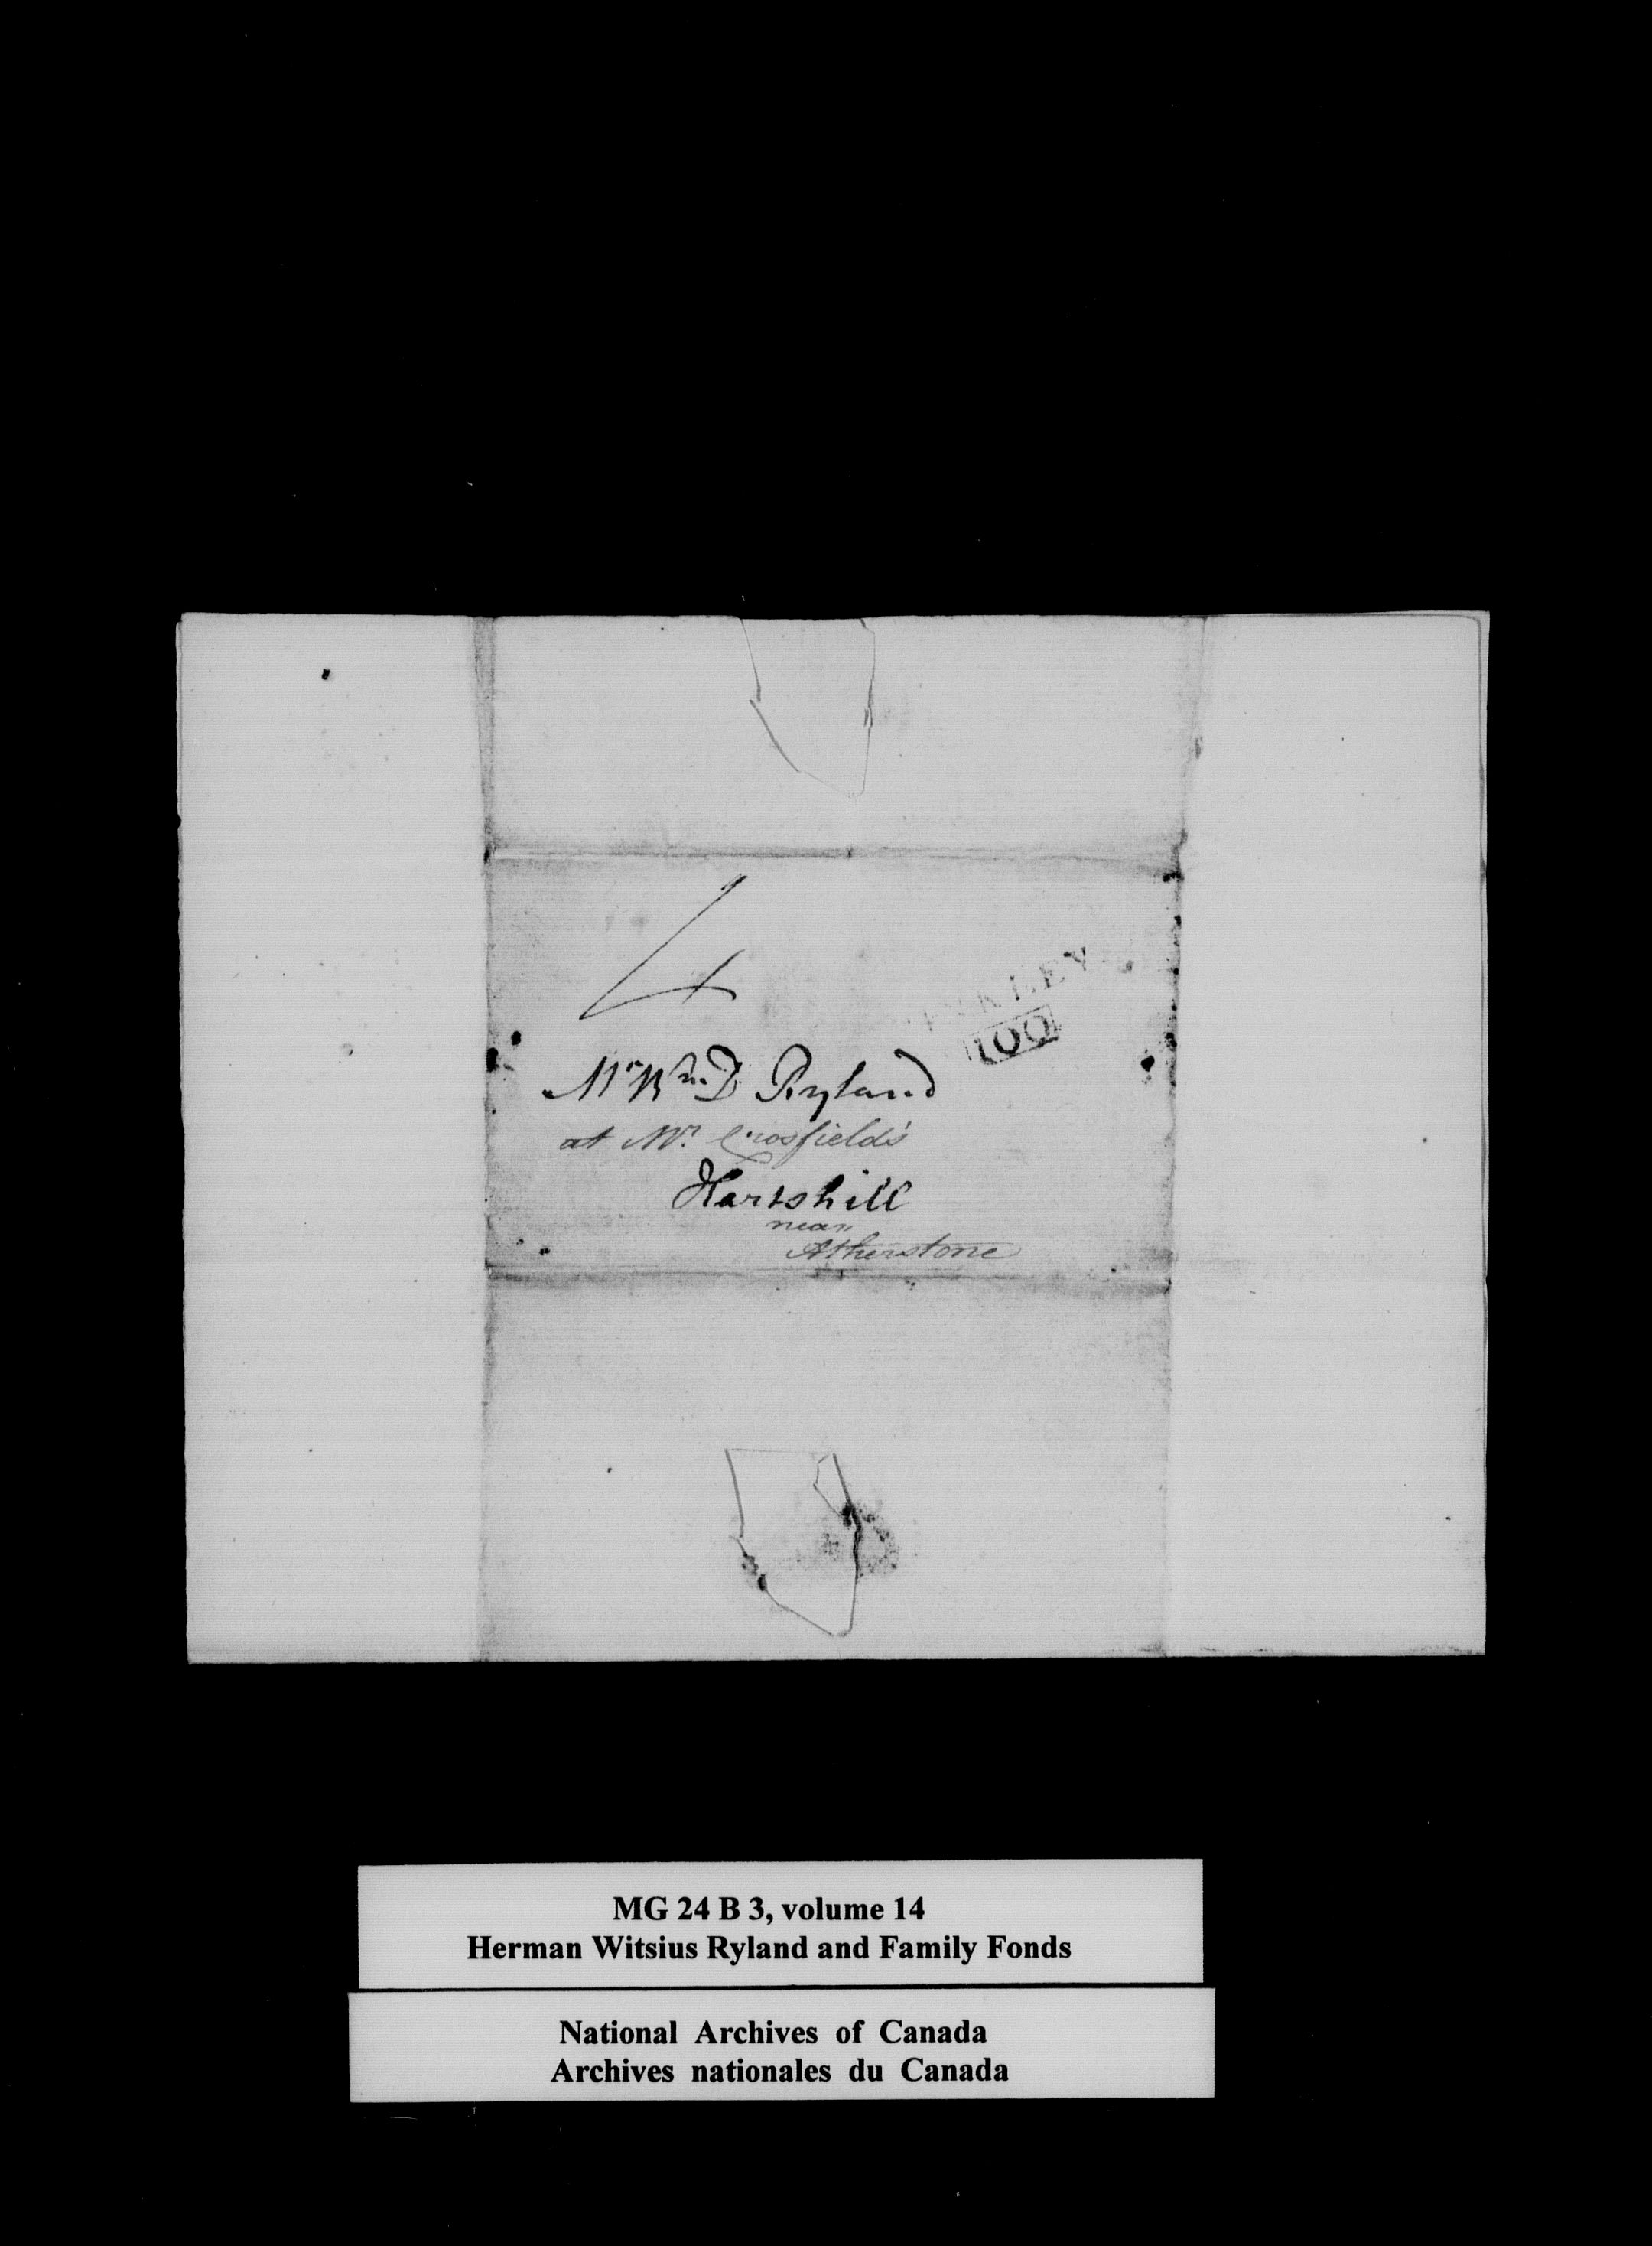 4
NKLEY
100
Mr Wm D Ryland
at Mr. Crosfield's
Hartshill
near
Atherstone
MG 24 B 3, volume 14
Herman Witsius Ryland and Family Fonds
National Archives of Canada
Archives nationales du Canada